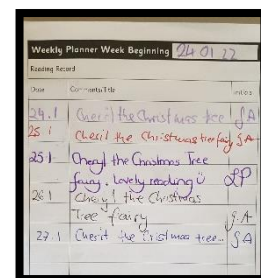 Weekly Planner Week Beginning 24 01 22
Reading Record
Date Comments/Title Initials
24.1 Cheril the Christmas tree J.A
25 1 Cheril the Christmas tree fairy J.A
25 1 Cheryl the Christmas Tree
fairy. Lovely reading ü LP
26 1 Cheryl the Christmas
Tree fairy J.A
27.1 Cheril the Cristmas tree... JA